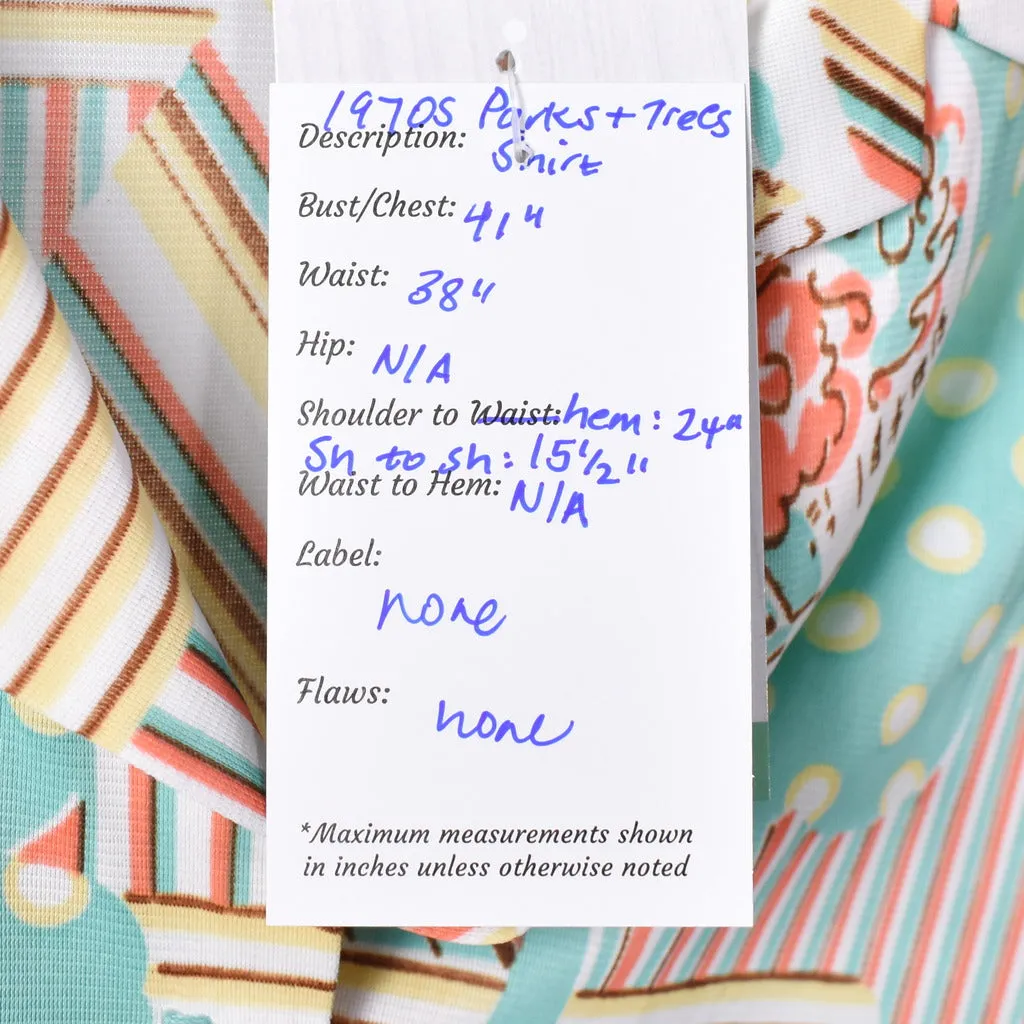 1970s Parks + Trees
Description: Shirt
Bust/Chest: 41"
Waist: 38"
Hip: N/A
Shoulder to Waist: hem: 24"
Sh to sh: 15 1/2"
Waist to Hem: N/A
Label:
none
Flaws:
none
*Maximum measurements shown
in inches unless otherwise noted